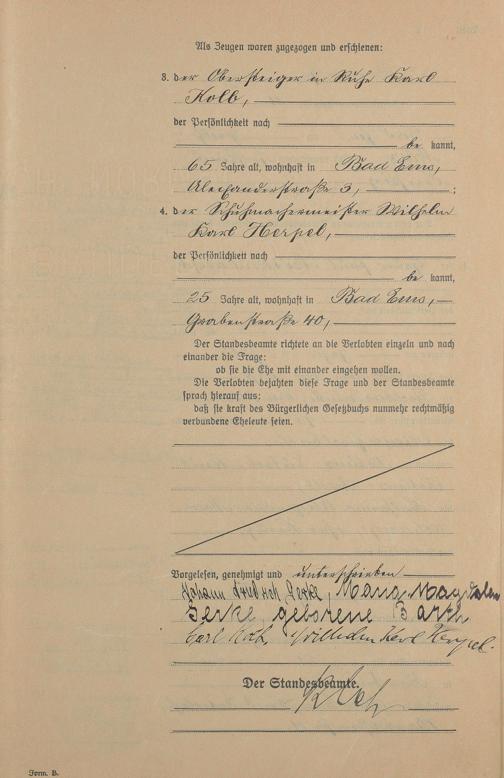 Als Zeugen waren zugezogen und erschienen:
3. der Obersteiger in Ruhe Karl
Kolb,
der Persönlichkeit nach
be kannt,
65 Jahre alt, wohnhaft in Bad Ems,
Alexanderstraße 5, ;
4. der Schuhmachermeister Wilhelm
Karl Herpel,
der Persönlichkeit nach
be kannt,
25 Jahre alt, wohnhaft in Bad Ems,
Grabenstraße 40,
Der Standesbeamte richtete an die Verlobten einzeln und nach
einander die Frage:
ob sie die Ehe mit einander eingehen wollen.
Die Verlobten bejahten diese Frage und der Standesbeamte
sprach hierauf aus:
daß sie kraft des Bürgerlichen Gesetzbuchs nunmehr rechtmäßig
verbundene Eheleute seien.
Vorgelesen, genehmigt und unterschrieben
Johann Maria Magdalena
geborene Barth
Wilhelm Karl Herpel.
Der Standesbeamte.
Form. B.